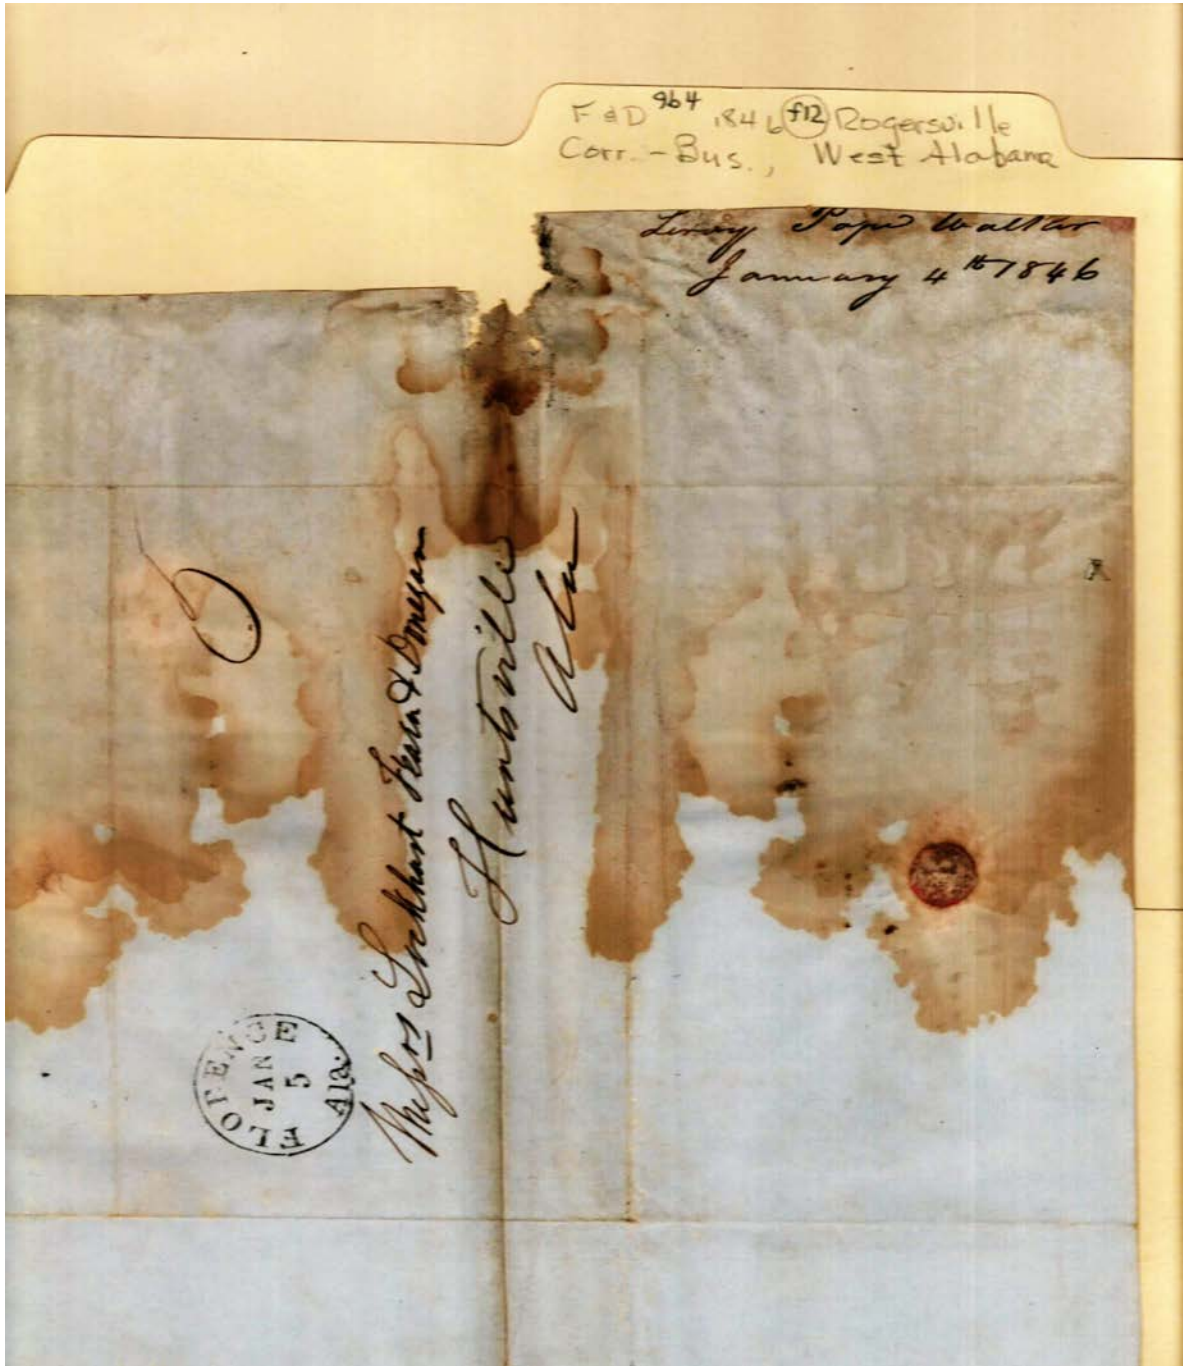 F&D 9b4 1846 f12 Rogersville
Corr. - Bus., West Alabama
Leroy Pope Walker
January 4th 1846
Messrs Lockhart Fearn & Donegan
Huntsville
Ala
FLORENCE
JAN
5
Ala.